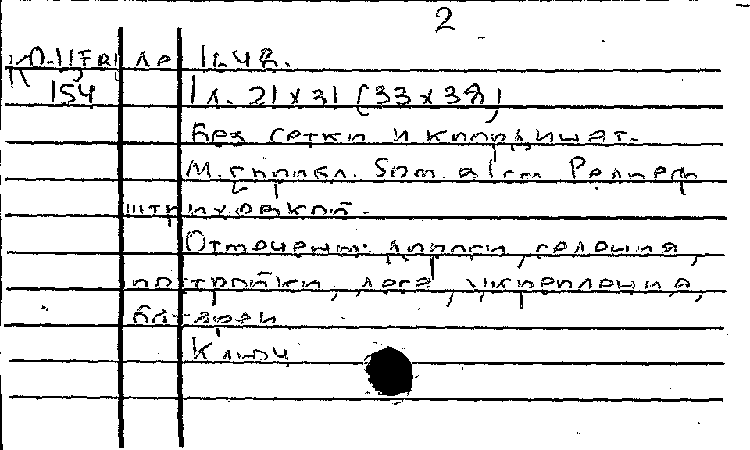 2
1648.
154 1 л. 21 x 31 (33 x 38)
без сетки и координат.
М. глазом. 50m. в 1cm Рельеф
штриховкой.
Отмечены: дороги, селения,
постройки, леса, укрепления,
батареи
Ключ